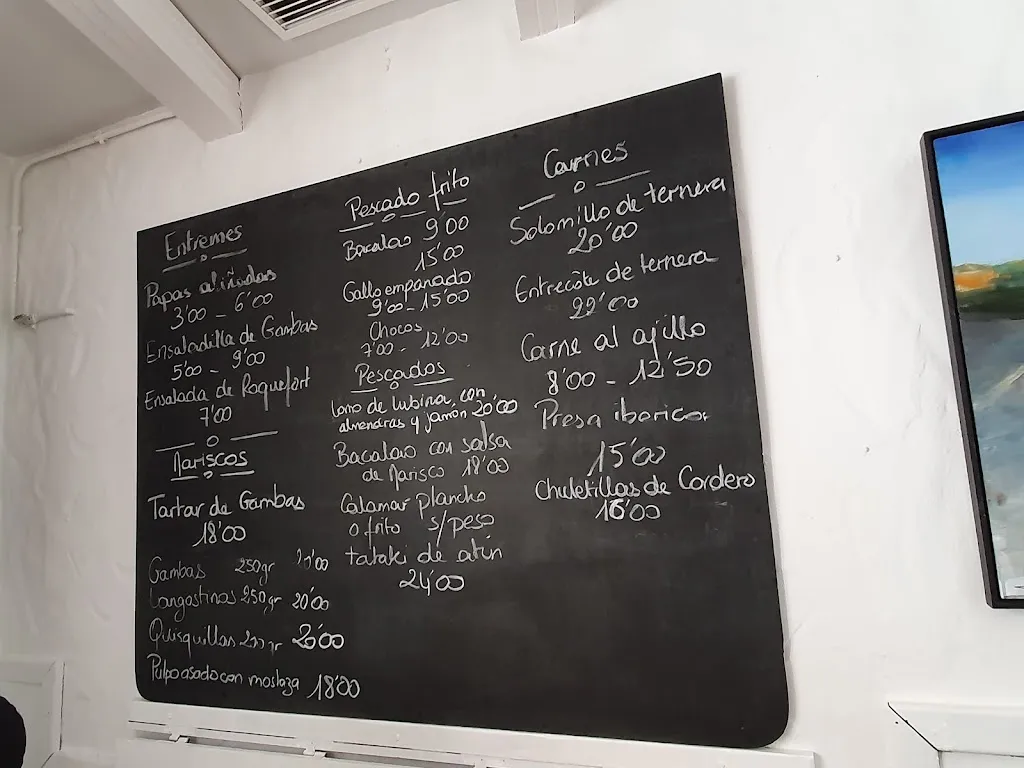 Entremes
Papas aliñadas
3'00 - 6'00
Ensaladilla de Gambas
5'00 - 9'00
Ensalada de Roquefort
7'00
Mariscos
Tartar de Gambas
18'00
Gambas 250gr
Langostinos 250gr 20'00
Quisquillas 200gr 20'00
Pulpo asado con mostaza 18'00
Pescado frito
Bacalao 9'00
15'00
Gallo empanado
9'00 - 15'00
Chocos
7'00 - 12'00
Pescados
Lomo de lubina, con
almendras y jamón 20'00
Bacalao con salsa
de Marisco 18'00
Calamar plancha
o frito s/peso
tataki de atún
24'00
Carnes
Solomillo de ternera
20'00
Entrecôte de ternera
22'00
Carne al ajillo
8'00 - 12'50
Presa iberica
15'00
Chuletillas de Cordero
16'00